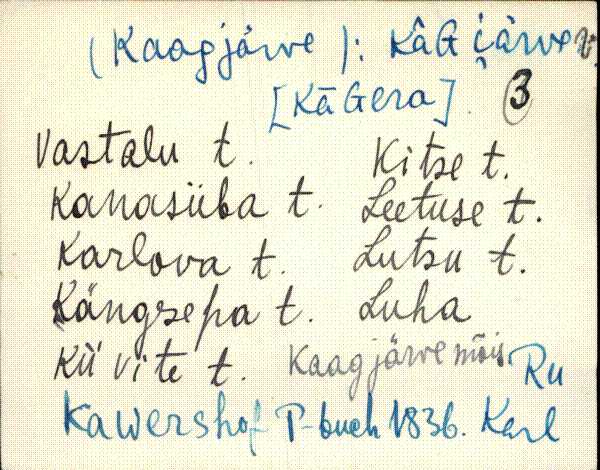 (Kaagjärve): KāG i̮ärve v.
[KāGera]. 3
Vastalu t. Kitse t.
Kanasüba t. Leetuse t.
Karlova t. Lutsu t.
Kängsepa t. Luha
Küvite t. Kaagjärve mõis Ru
Kawershof P-buch 1836. Karl